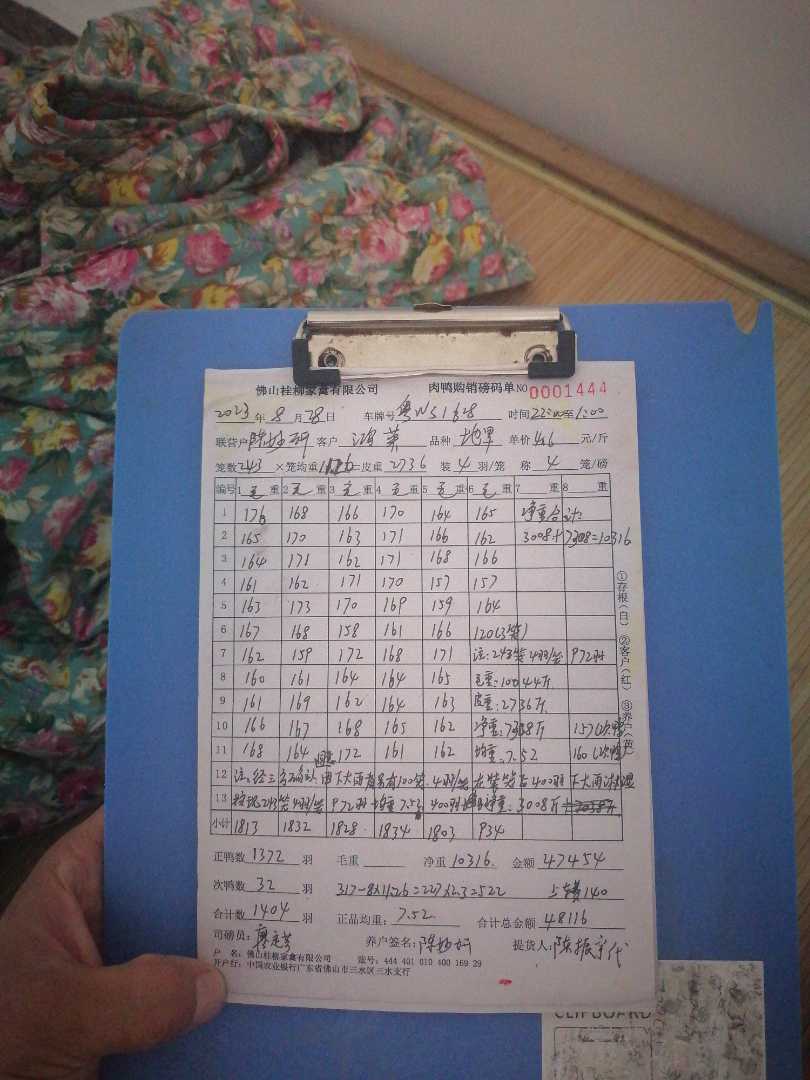 佛山桂柳家禽有限公司 肉鸭购销磅码单 NO 0001444
2023年8月28日 车牌号 粤WS1868 时间 22:00至1:00
联贷户 客户 鸿英 品种 单价 4.6 元/斤
笼数 243 ×笼均重 =皮重 2736 装 4 羽/笼 称 4 笼/磅
编号 1 毛 重 2 毛 重 3 毛 重 4 毛 重 5 毛 重 6 毛 重 7 重 8 重
1 176 168 166 170 164 165 净重合计:
2 165 170 163 171 166 162 3008+7308=10316
3 164 171 162 171 168 166
4 161 162 171 170 157 157
5 163 173 170 169 159 164
6 167 168 158 161 166 120(3笼)
7 162 159 172 168 171 注:243笼4羽/笼 972羽
8 160 161 164 164 165 毛重:10044斤
9 161 169 162 164 163 皮重:2736斤
10 166 167 168 165 162 净重:7308斤 157(次鸭
11 168 164 172 161 162 均重:7.52 160(次鸭
12 注:经三方确认 因下大雨 有100笼.4羽/笼 400羽 下大雨
13 243笼4羽/笼 972羽 均重7.52 400羽 净重:3008斤
小计 1813 1832 1828 1834 1803 934
①存根(白) ②客户(红) ③养户(黄)
正鸭数 1372 羽 毛重 净重 10316. 金额 47454
次鸭数 32 羽 317-8×11.26=227×2.3=522 上车费140
合计数 1404 羽 正品均重: 7.52 合计总金额 48116
司磅员: 养户签名: 提货人: 陈振宇代
户 名:佛山桂柳家禽有限公司 账号:444 401 010 400 169 29
开户行:中国农业银行广东省佛山市三水区三水支行
CLIPBOARD